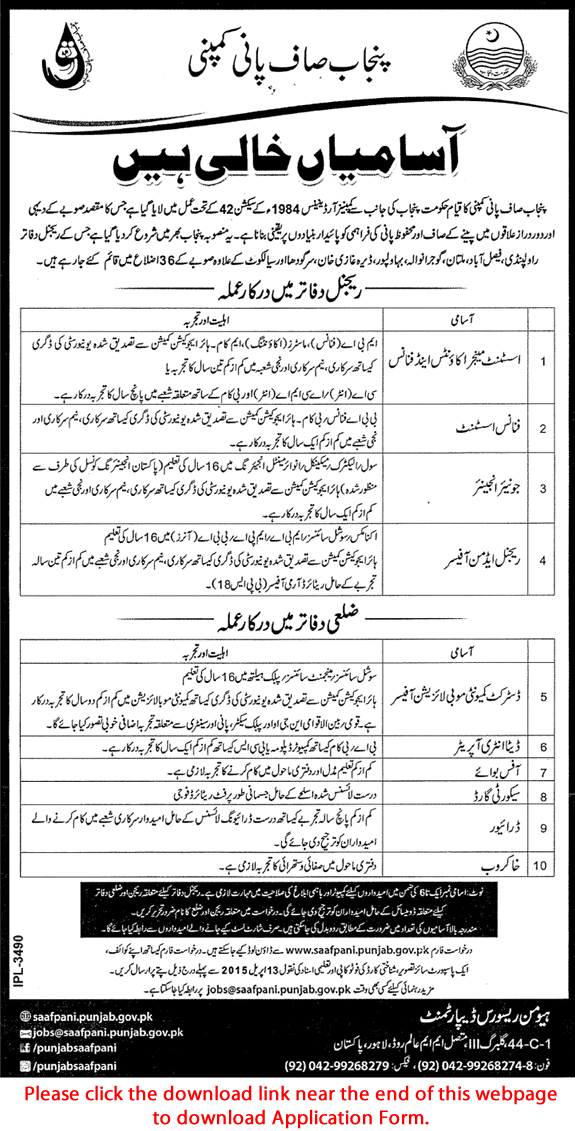 پنجاب صاف پانی کمپنی
آسامیاں خالی ہیں
پنجاب صاف پانی کمپنی کا قیام حکومت پنجاب کی جانب سے کمپنیز آرڈیننس 1984ء کے سیکشن 42 کے تحت عمل میں لایا گیا ہے جس کا مقصد صوبے کے دیہی
اور دور دراز علاقوں میں پینے کے صاف اور محفوظ پانی کی فراہمی کو پائیدار بنیادوں پر یقینی بنانا ہے۔ یہ منصوبہ پنجاب بھر میں شروع کر دیا گیا ہے جس کے ریجنل دفاتر
راولپنڈی، فیصل آباد، ملتان، گوجرانوالہ، بہاولپور، ڈیرہ غازی خان، سرگودھا اور سیالکوٹ کے علاوہ صوبے کے 36 اضلاع میں قائم کئے جا رہے ہیں۔
ریجنل دفاتر میں درکار عملہ
آسامی اہلیت اور تجربہ
1 اسسٹنٹ مینیجر اکاؤنٹس اینڈ فنانس ایم بی اے (فنانس)، ماسٹرز (اکاؤنٹنگ)، ایم کام۔ ہائر ایجوکیشن کمیشن سے تصدیق شدہ یونیورسٹی کی ڈگری
کیساتھ سرکاری، نیم سرکاری اور نجی شعبہ میں کم از کم تین سال کا تجربہ یا
سی اے (انٹر)/اے سی ایم اے (انٹر) اور بی کام کے ساتھ متعلقہ شعبے میں پانچ سال کا تجربہ درکار ہے۔
2 فنانس اسسٹنٹ بی بی اے فنانس/بی کام۔ ہائر ایجوکیشن کمیشن سے تصدیق شدہ یونیورسٹی کی ڈگری کیساتھ سرکاری، نیم سرکاری اور
نجی شعبے میں کم از کم ایک سال کا تجربہ درکار ہے۔
3 جونیئر انجینئر سول/الیکٹریکل/مکینیکل/انوائرمینٹل انجینئرنگ میں 16 سال کی تعلیم (پاکستان انجینئرنگ کونسل کی طرف سے
منظور شدہ) ہائر ایجوکیشن کمیشن سے تصدیق شدہ یونیورسٹی کی ڈگری کیساتھ سرکاری، نیم سرکاری اور نجی شعبے میں
کم از کم ایک سال کا تجربہ درکار ہے۔
4 ریجنل ایڈمن آفیسر اکنامکس/سوشل سائنسز/ایم بی اے/ایم پی اے/بی بی اے (آنرز) میں 16 سال کی تعلیم
ہائر ایجوکیشن کمیشن سے تصدیق شدہ یونیورسٹی کی ڈگری کیساتھ سرکاری، نیم سرکاری اور نجی شعبے میں کم از کم تین سالہ
تجربے کے حامل ریٹائرڈ آرمی آفیسر (بی پی ایس 18)۔
ضلعی دفاتر میں درکار عملہ
آسامی اہلیت اور تجربہ
5 ڈسٹرکٹ کمیونٹی موبی لائزیشن آفیسر سوشل سائنسز/مینجمنٹ سائنسز/پبلک ہیلتھ میں 16 سال کی تعلیم
ہائر ایجوکیشن کمیشن سے تصدیق شدہ یونیورسٹی کی ڈگری کیساتھ کمیونٹی موبلائزیشن میں کم از کم دو سال کا تجربہ درکار
ہے۔ قومی/بین الاقوامی این جی او اور پبلک سیکٹر، پانی اور سینٹری سے متعلقہ تجربہ اضافی خوبی تصور کیا جائے گا۔
6 ڈیٹا انٹری آپریٹر بی اے/بی کام کیساتھ کمپیوٹر ڈپلومہ یا بی سی ایس کیساتھ کم از کم ایک سال کا تجربہ درکار ہے۔
7 آفس بوائے کم از کم تعلیم مڈل اور دفتری ماحول میں کام کرنے کا تجربہ لازمی ہے۔
8 سیکورٹی گارڈ درست لائسنس شدہ اسلحے کے حامل جسمانی طور پر فٹ ریٹائرڈ فوجی
9 ڈرائیور کم از کم پانچ سالہ تجربے کیساتھ درست ڈرائیونگ لائسنس کے حامل امیدوار سرکاری شعبے میں کام کرنے والے
امیدواران کو ترجیح دی جائے گی۔
10 خاکروب دفتری ماحول میں صفائی و ستھرائی کا تجربہ لازمی ہے۔
نوٹ: آسامی نمبر ایک تا 6 کی ضمن میں امیدواروں کیلئے کمپیوٹر اور باہمی ابلاغ کی صلاحیت میں مہارت لازمی ہے۔ ریجنل دفاتر کیلئے متعلقہ ریجن اور ضلعی دفاتر
کیلئے متعلقہ ڈومیسائل کے حامل امیدواران کو ترجیح دی جائے گی۔ درخواست میں متعلقہ ریجن اور ضلع کا نام ضرور تحریر کریں۔
مندرجہ بالا آسامیوں کی تعداد میں ضرورت کے مطابق ردوبدل کی جا سکتی ہیں۔ صرف شارٹ لسٹ کیے جانے والے امیدواران سے رابطہ کیا جائے گا۔
درخواست فارم www.saafpani.punjab.gov.pk سے ڈاؤن لوڈ کیے جا سکتے ہیں۔ درخواست فارم کیساتھ اپنے کوائف،
ایک پاسپورٹ سائز تصویر، شناختی کارڈ کی فوٹو کاپی اور تعلیمی اسناد کی نقول 13 اپریل 2015 سے پہلے درج ذیل پتے پر ارسال کریں۔
مزید رہنمائی کیلئے کسی بھی وقت jobs@saafpani.punjab.gov.pk پر رابطہ کیا جا سکتا ہے۔
IPL-3490
ہیومن ریسورس ڈیپارٹمنٹ
44-C-1، گلبرگ III، متصل ایم ایم عالم روڈ، لاہور، پاکستان
فون: 8-99268274-042 (92)، فیکس: 99268279-042 (92)
saafpani.punjab.gov.pk
jobs@saafpani.punjab.gov.pk
/punjabsaafpani
/punjabsaafpani
Please click the download link near the end of this webpage
to download Application Form.